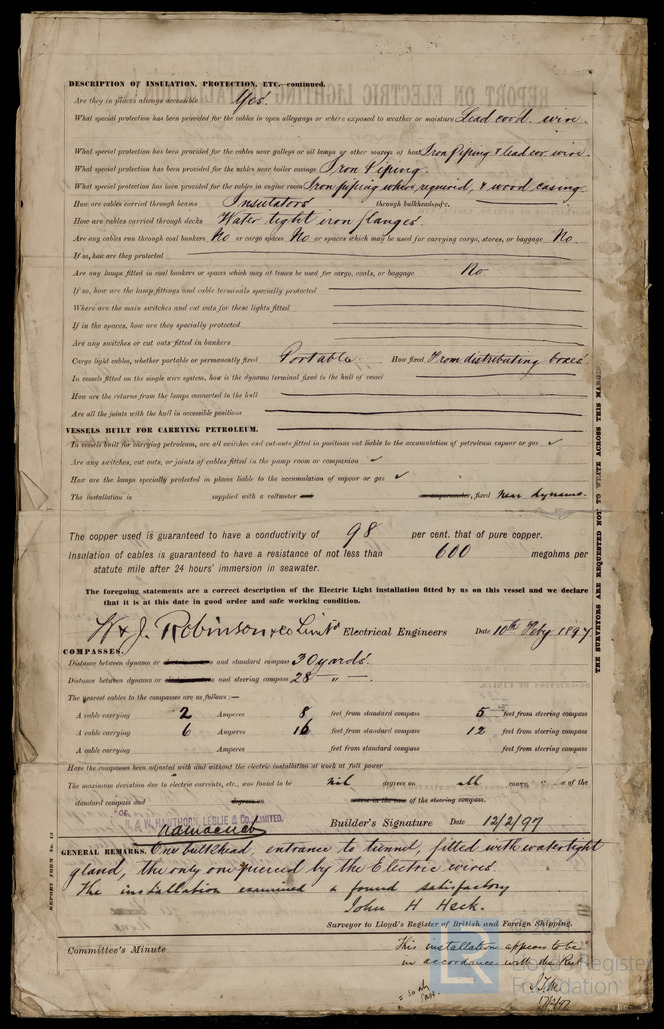 DESCRIPTION OF INSULATION, PROTECTION, ETC.—continued.
Are they in places always accessible Yes.
What special protection has been provided for the cables in open alleyways or where exposed to weather or moisture Lead cov'd wire.
What special protection has been provided for the cables near galleys or oil lamps or other sources of heat Iron Piping & lead cov. wire.
What special protection has been provided for the cables near boiler casings Iron Piping.
What special protection has been provided for the cables in engine room Iron piping where required, & wood casing.
How are cables carried through beams Insulators through bulkheads, &c.
How are cables carried through decks Water tight iron flanges.
Are any cables run through coal bunkers No or cargo spaces No or spaces which may be used for carrying cargo, stores, or baggage No
If so, how are they protected
Are any lamps fitted in coal bunkers or spaces which may at times be used for cargo, coals, or baggage No
If so, how are the lamp fittings and cable terminals specially protected
Where are the main switches and cut outs for these lights fitted
If in the spaces, how are they specially protected
Are any switches or cut outs fitted in bunkers
Cargo light cables, whether portable or permanently fixed Portable How fixed From distributing boxes
In vessels fitted on the single wire system, how is the dynamo terminal fixed to the hull of vessel
How are the returns from the lamps connected to the hull
Are all the joints with the hull in accessible positions
VESSELS BUILT FOR CARRYING PETROLEUM.
In vessels built for carrying petroleum, are all switches and cut-outs fitted in positions not liable to the accumulation of petroleum vapour or gas ✓
Are any switches, cut outs, or joints of cables fitted in the pump room or companion ✓
How are the lamps specially protected in places liable to the accumulation of vapour or gas ✓
The installation is supplied with a voltmeter and an amperemeter, fixed near dynamo.
The copper used is guaranteed to have a conductivity of 98 per cent. that of pure copper.
Insulation of cables is guaranteed to have a resistance of not less than 600 megohms per
statute mile after 24 hours' immersion in seawater.
The foregoing statements are a correct description of the Electric Light installation fitted by us on this vessel and we declare
that it is at this date in good order and safe working condition.
W & J. Robinson & Co Limtd Electrical Engineers Date 10th Feby 1897
COMPASSES.
Distance between dynamo or and standard compass 30 yards.
Distance between dynamo or and steering compass 28 — " —
The nearest cables to the compasses are as follows:—
A cable carrying 2 Amperes 8 feet from standard compass 5 feet from steering compass
A cable carrying 6 Amperes 16 feet from standard compass 12 feet from steering compass
A cable carrying Amperes feet from standard compass feet from steering compass
Have the compasses been adjusted with and without the electric installation at work at full power
The maximum deviation due to electric currents, etc., was found to be nil degrees on all of the
standard compass and degrees on course in the case of the steering compass.
R. & W. HAWTHORN, LESLIE & CO. LIMITED,
Builder's Signature Date 12/2/97
GENERAL REMARKS. One bulkhead, entrance to tunnel, fitted with watertight
gland, the only one pierced by the Electric wires.
The installation examined & found satisfactory
John H Heck.
Surveyor to Lloyd's Register of British and Foreign Shipping.
Committee's Minute
This installation appears to be
in accordance with the Rules
17/2/97
THE SURVEYORS ARE REQUESTED NOT TO WRITE ACROSS THIS MARGIN
REPORT FORM No. 13
LR
Lloyd's Register
Foundation